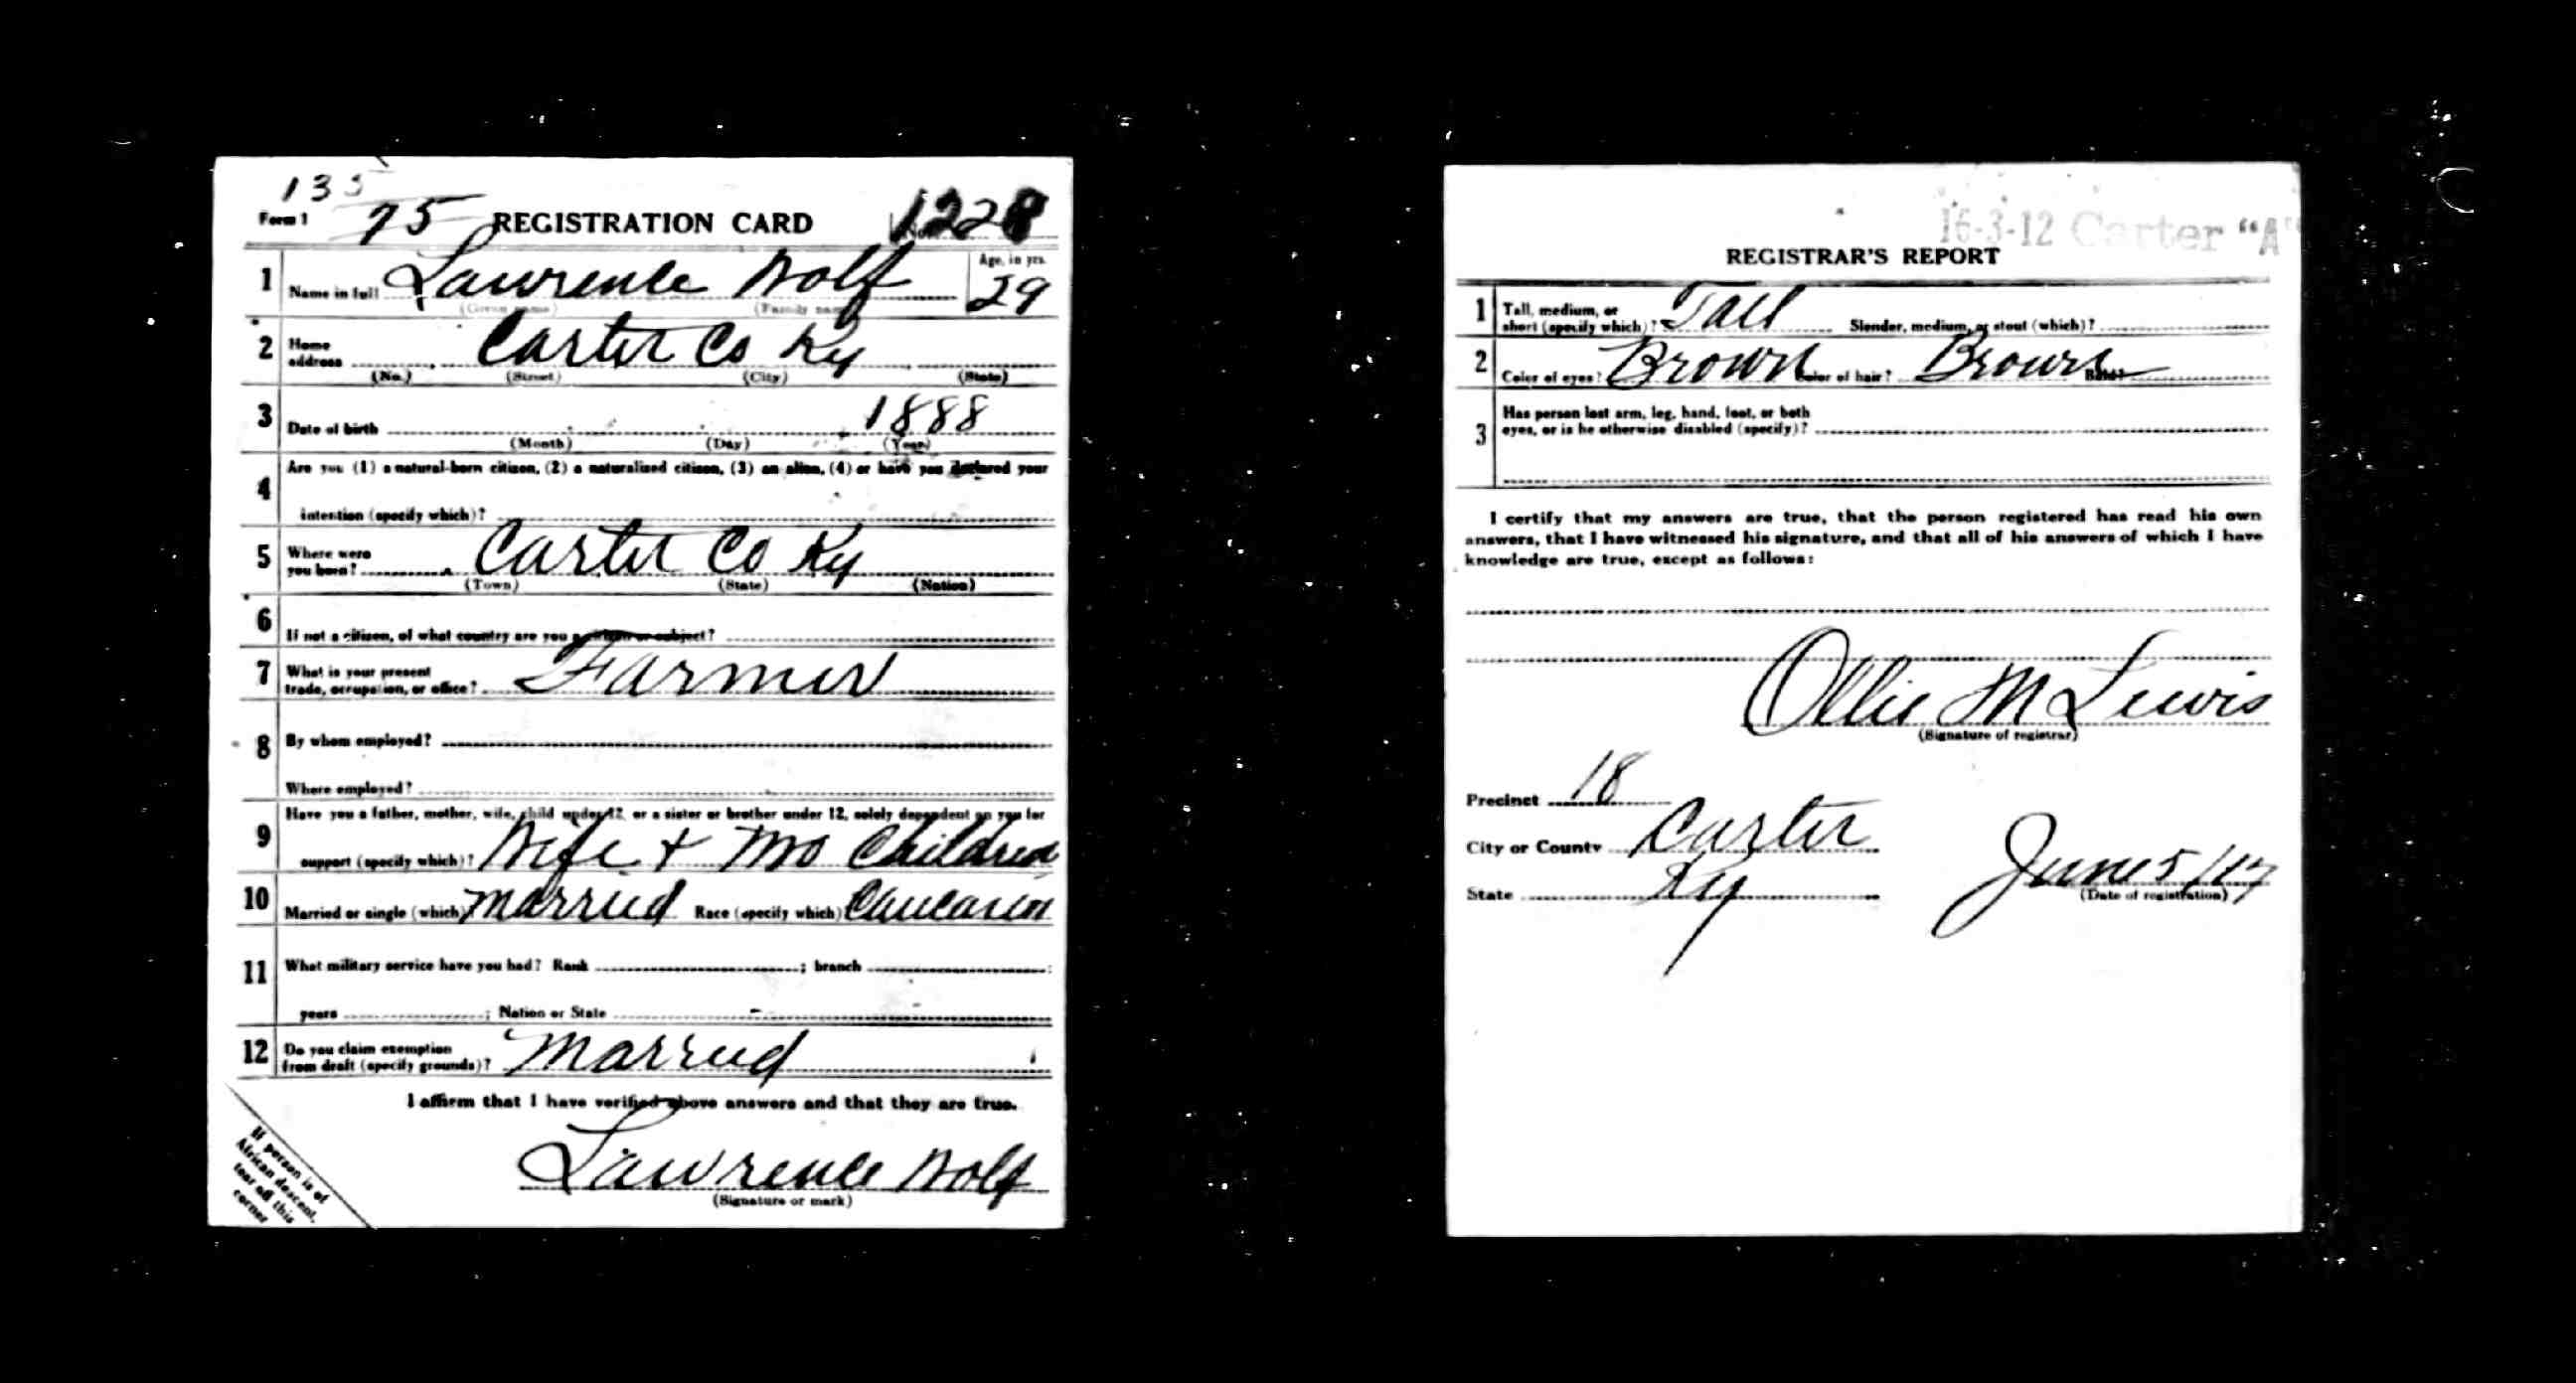 135
Form 1 75 REGISTRATION CARD No. 1228
1 Name in full Lawrence Wolf Age, in yrs. 29
(Given name) (Family name)
2 Home address Carter Co Ky
(No.) (Street) (City) (State)
3 Date of birth 1888
(Month) (Day) (Year)
4 Are you (1) a natural-born citizen, (2) a naturalized citizen, (3) an alien, (4) or have you declared your
intention (specify which)?
5 Where were you born? Carter Co Ky
(Town) (State) (Nation)
6 If not a citizen, of what country are you a citizen or subject?
7 What is your present trade, occupation, or office? Farmer
8 By whom employed?
Where employed?
9 Have you a father, mother, wife, child under 12, or a sister or brother under 12, solely dependent on you for
support (specify which)? Wife + Children
10 Married or single (which) Married Race (specify which) Caucasin
11 What military service have you had? Rank ; branch ;
years ; Nation or State
12 Do you claim exemption from draft (specify grounds)? Married
I affirm that I have verified above answers and that they are true.
Lawrence Wolf
(Signature or mark)
If person is of
African descent,
tear off this
corner
16-3-12 Carter "A"
REGISTRAR'S REPORT
1 Tall, medium, or short (specify which)? Tall Slender, medium, or stout (which)?
2 Color of eyes? Brown Color of hair? Brown Bald?
3 Has person lost arm, leg, hand, foot, or both
eyes, or is he otherwise disabled (specify)?
I certify that my answers are true, that the person registered has read his own
answers, that I have witnessed his signature, and that all of his answers of which I have
knowledge are true, except as follows:
Ollie M Lewis
(Signature of registrar)
Precinct 18
City or County Carter
State Ky June 5/17
(Date of registration)